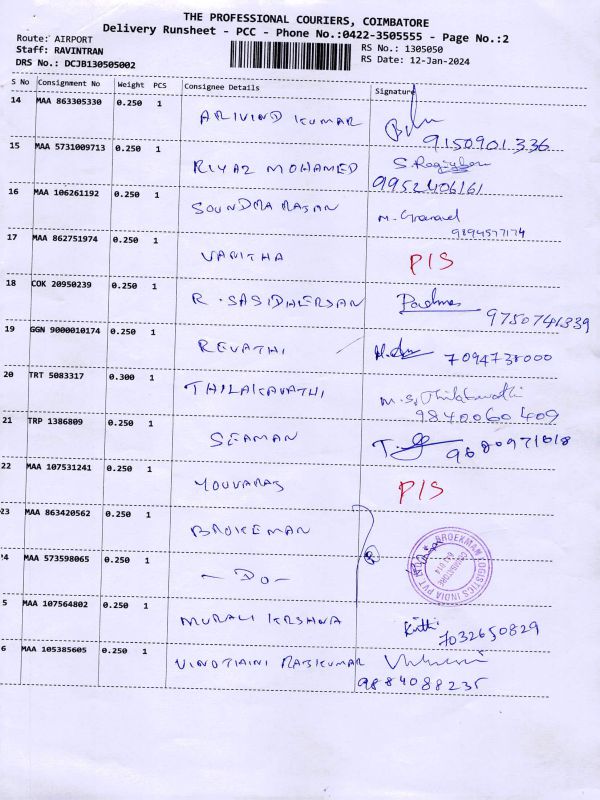 THE PROFESSIONAL COURIERS, COIMBATORE
Delivery Runsheet - PCC - Phone No.:0422-3505555 - Page No.:2
Route: AIRPORT
Staff: RAVINTRAN
DRS No.: DCJB130505002
RS No.: 1305050
RS Date: 12-Jan-2024
S No Consignment No Weight PCS Consignee Details Signature
14 MAA 863305330 0.250 1 ARIVIND KUMAR 9150901336
15 MAA 5731009713 0.250 1 RIYAZ MOHAMED S.
9952406161
16 MAA 106261192 0.250 1 SOUNDMARAJAN M.
9894577174
17 MAA 862751974 0.250 1 VANITHA P/S
18 COK 20950239 0.250 1 R. SASIDHERSAN Padma
9750741339
19 GGN 9000010174 0.250 1 REVATHI 7094738000
20 TRT 5083317 0.300 1 THILAKAVATHI M.S. Thilakavathi
9840060409
21 TRP 1386809 0.250 1 SEAMAN 9680971818
22 MAA 107531241 0.250 1 YOUVARAJ P/S
23 MAA 863420562 0.250 1 BROKEMAN
24 MAA 573598065 0.250 1 - DO -
BROEKMAN LOGISTICS INDIA PVT
COIMBATORE
641 014
5 MAA 107564802 0.250 1 MURALI KRSHNA Kirthi
7032650829
6 MAA 105385605 0.250 1 VINOTHINI RAJKUMAR
9884088235